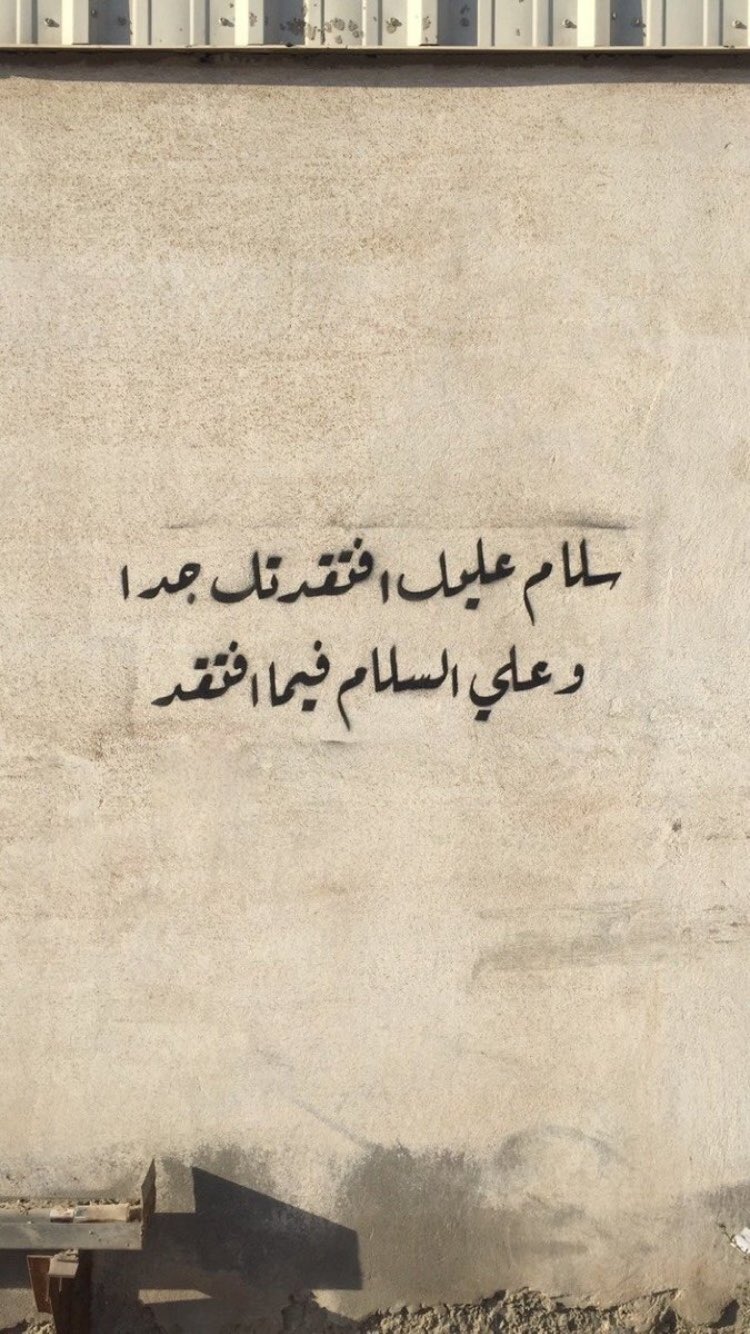 سلام عليك افتقدتك جدا
وعلي السلام فيما افتقد